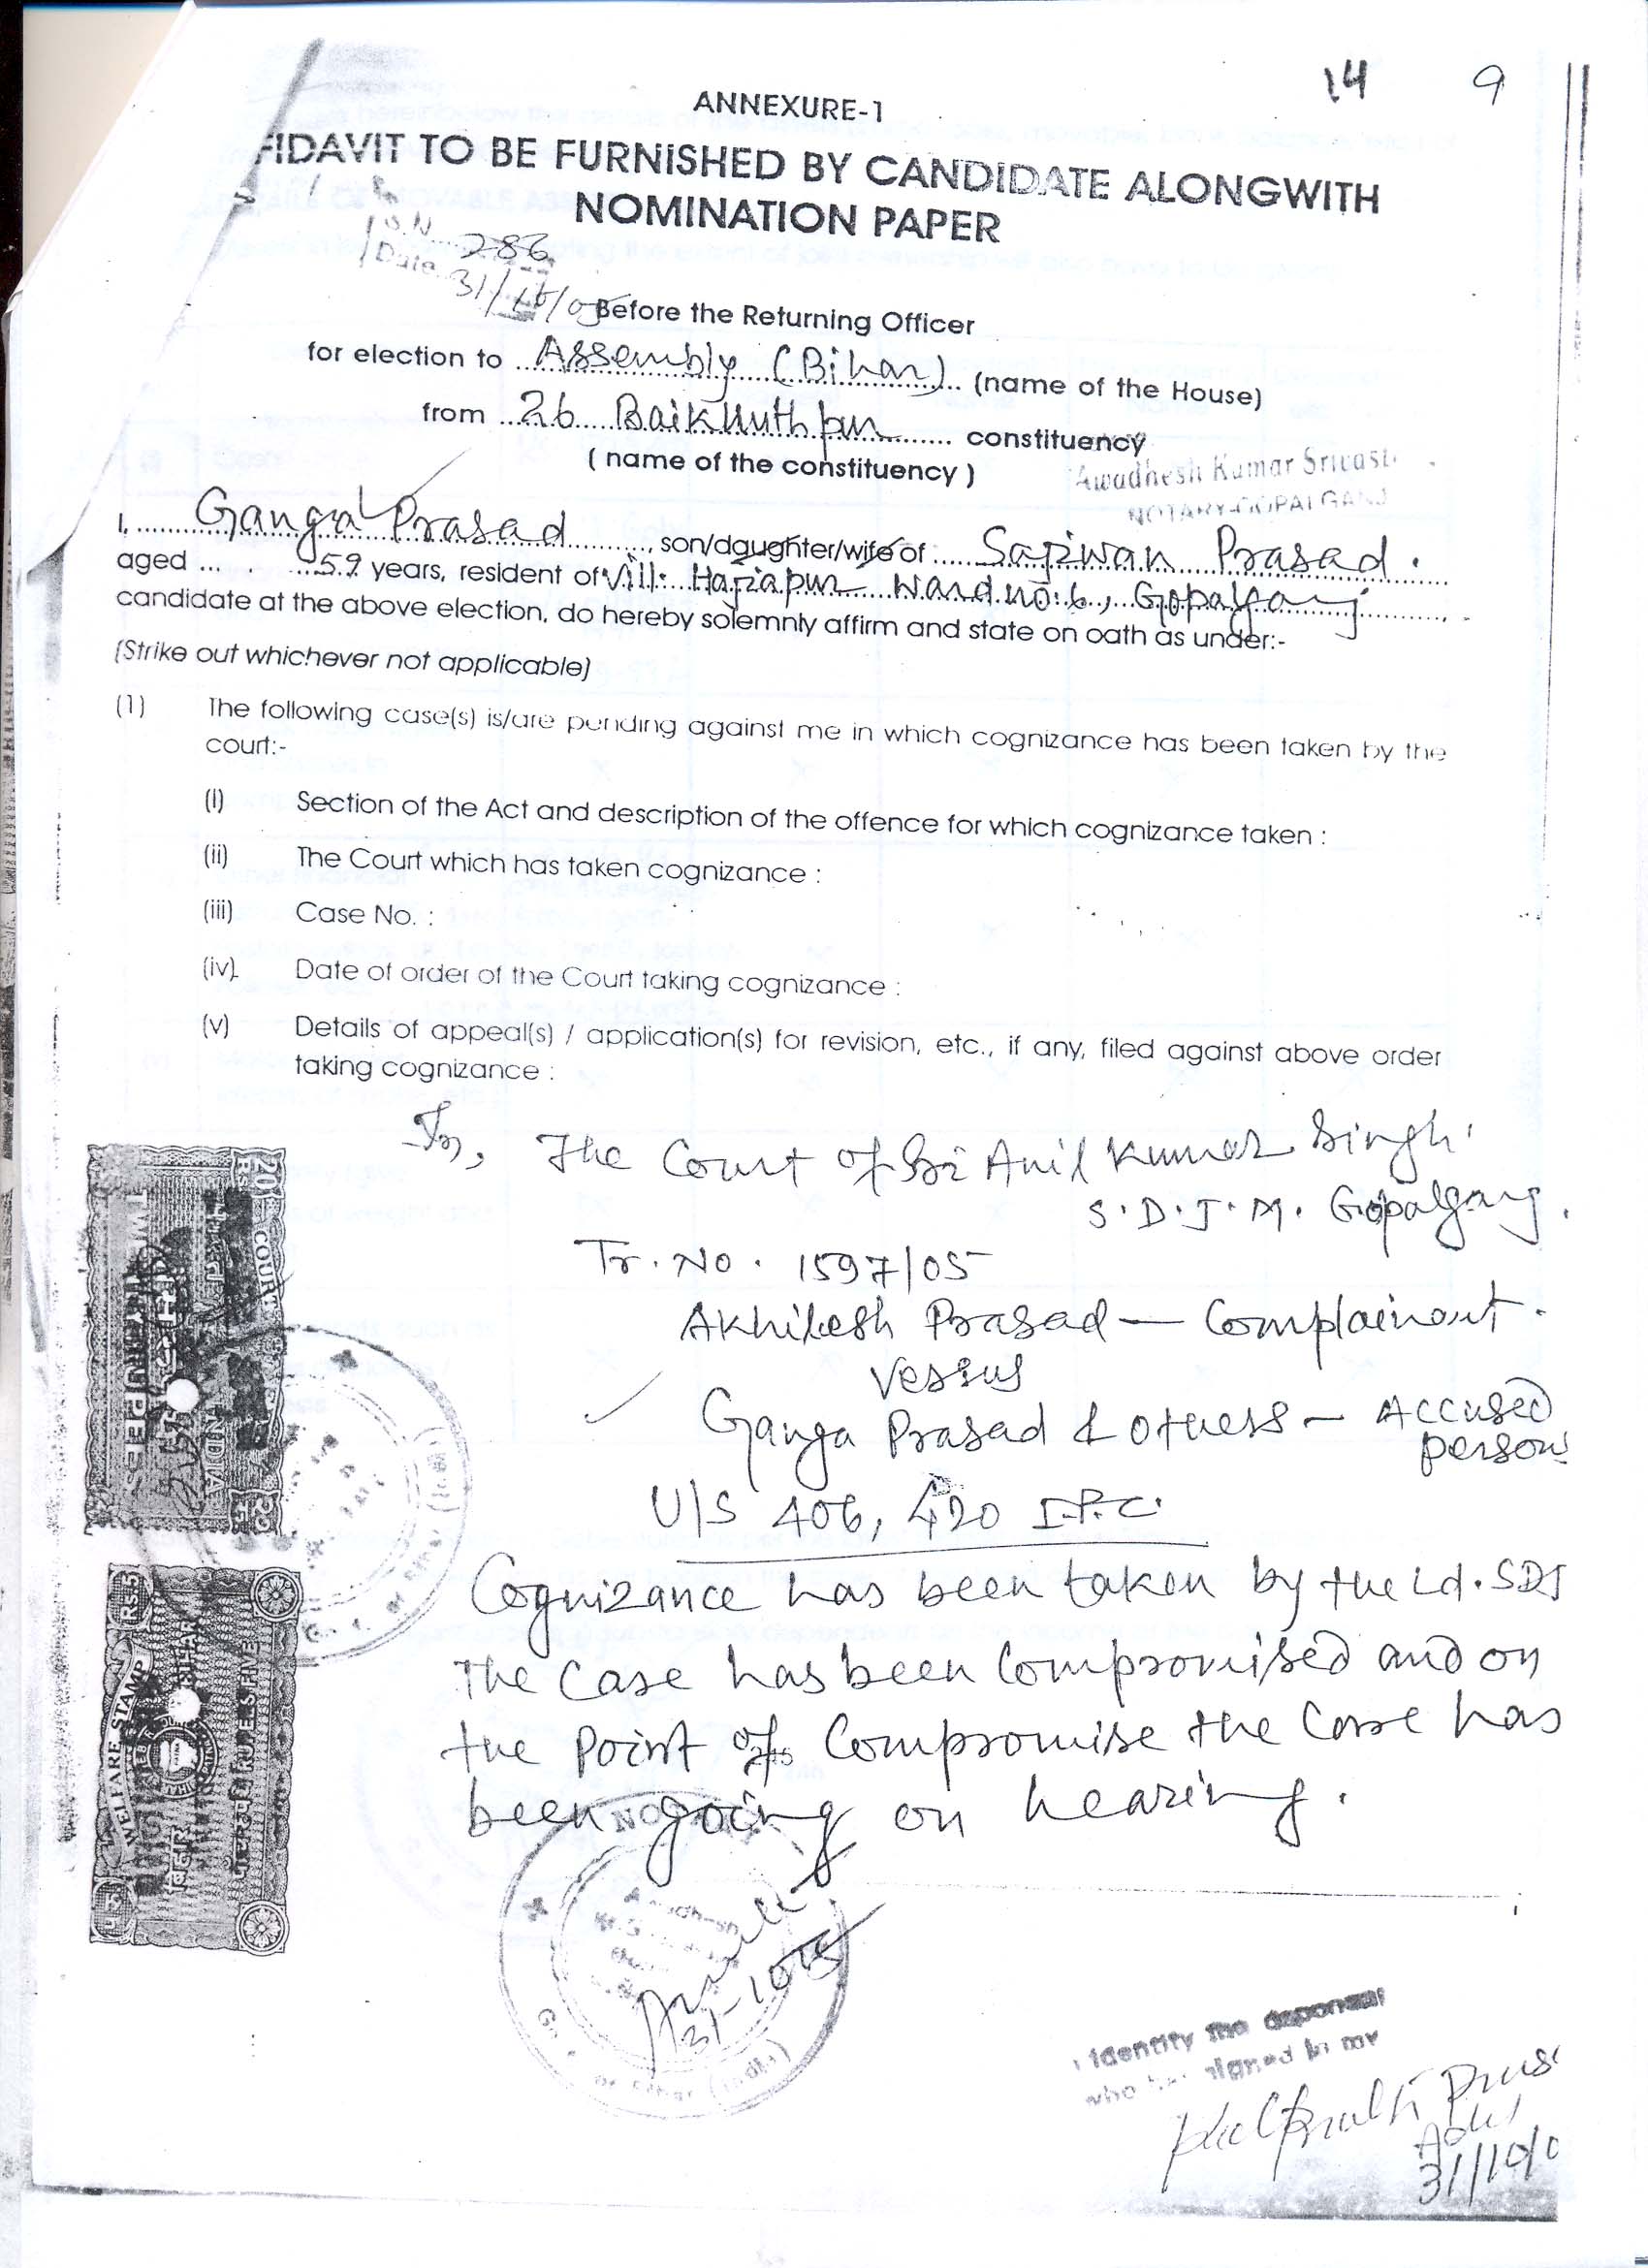 14 9
ANNEXURE-1
FIDAVIT TO BE FURNISHED BY CANDIDATE ALONGWITH
NOMINATION PAPER
S.N 286
Date 31/10/05
Before the Returning Officer
for election to Assembly (Bihar) (name of the House)
from 26 Baikunthpur constituency
( name of the constituency )
Awadhesh Kumar Srivast
NOTARY-GOPALGANJ
I, Ganga Prasad, son/daughter/wife of Sajiwan Prasad.
aged 59 years, resident of Vill: Hajiapur Ward no: 6, Gopalganj
candidate at the above election, do hereby solemnly affirm and state on oath as under:-
(Strike out whichever not applicable)
(1) The following case(s) is/are pending against me in which cognizance has been taken by the
court:-
(i) Section of the Act and description of the offence for which cognizance taken :
(ii) The Court which has taken cognizance :
(iii) Case No. :
(iv) Date of order of the Court taking cognizance :
(v) Details of appeal(s) / application(s) for revision, etc., if any, filed against above order
taking cognizance :
In, The Court of Sri Anil Kumar Singh
S.D.J.M. Gopalganj.
Tr. No. 1597/05
Akhilesh Prasad — Complainant.
Versus
Ganga Prasad & others — Accused
persons
U/S 406, 420 I.P.C.
Cognizance has been taken by the Ld. SDJ
The case has been Compromised and on
the point of Compromise the Case has
been going on hearing.
20 COURT
RS.
TWENTY RUPEES
INDIA
RS.5
WELFARE STAMP
BIHAR
RUPEES FIVE
बिहार
पाँच रुपये
NO
31-10-05
of Bihar (India)
I identify the deponent
who has signed in my
31/10/0